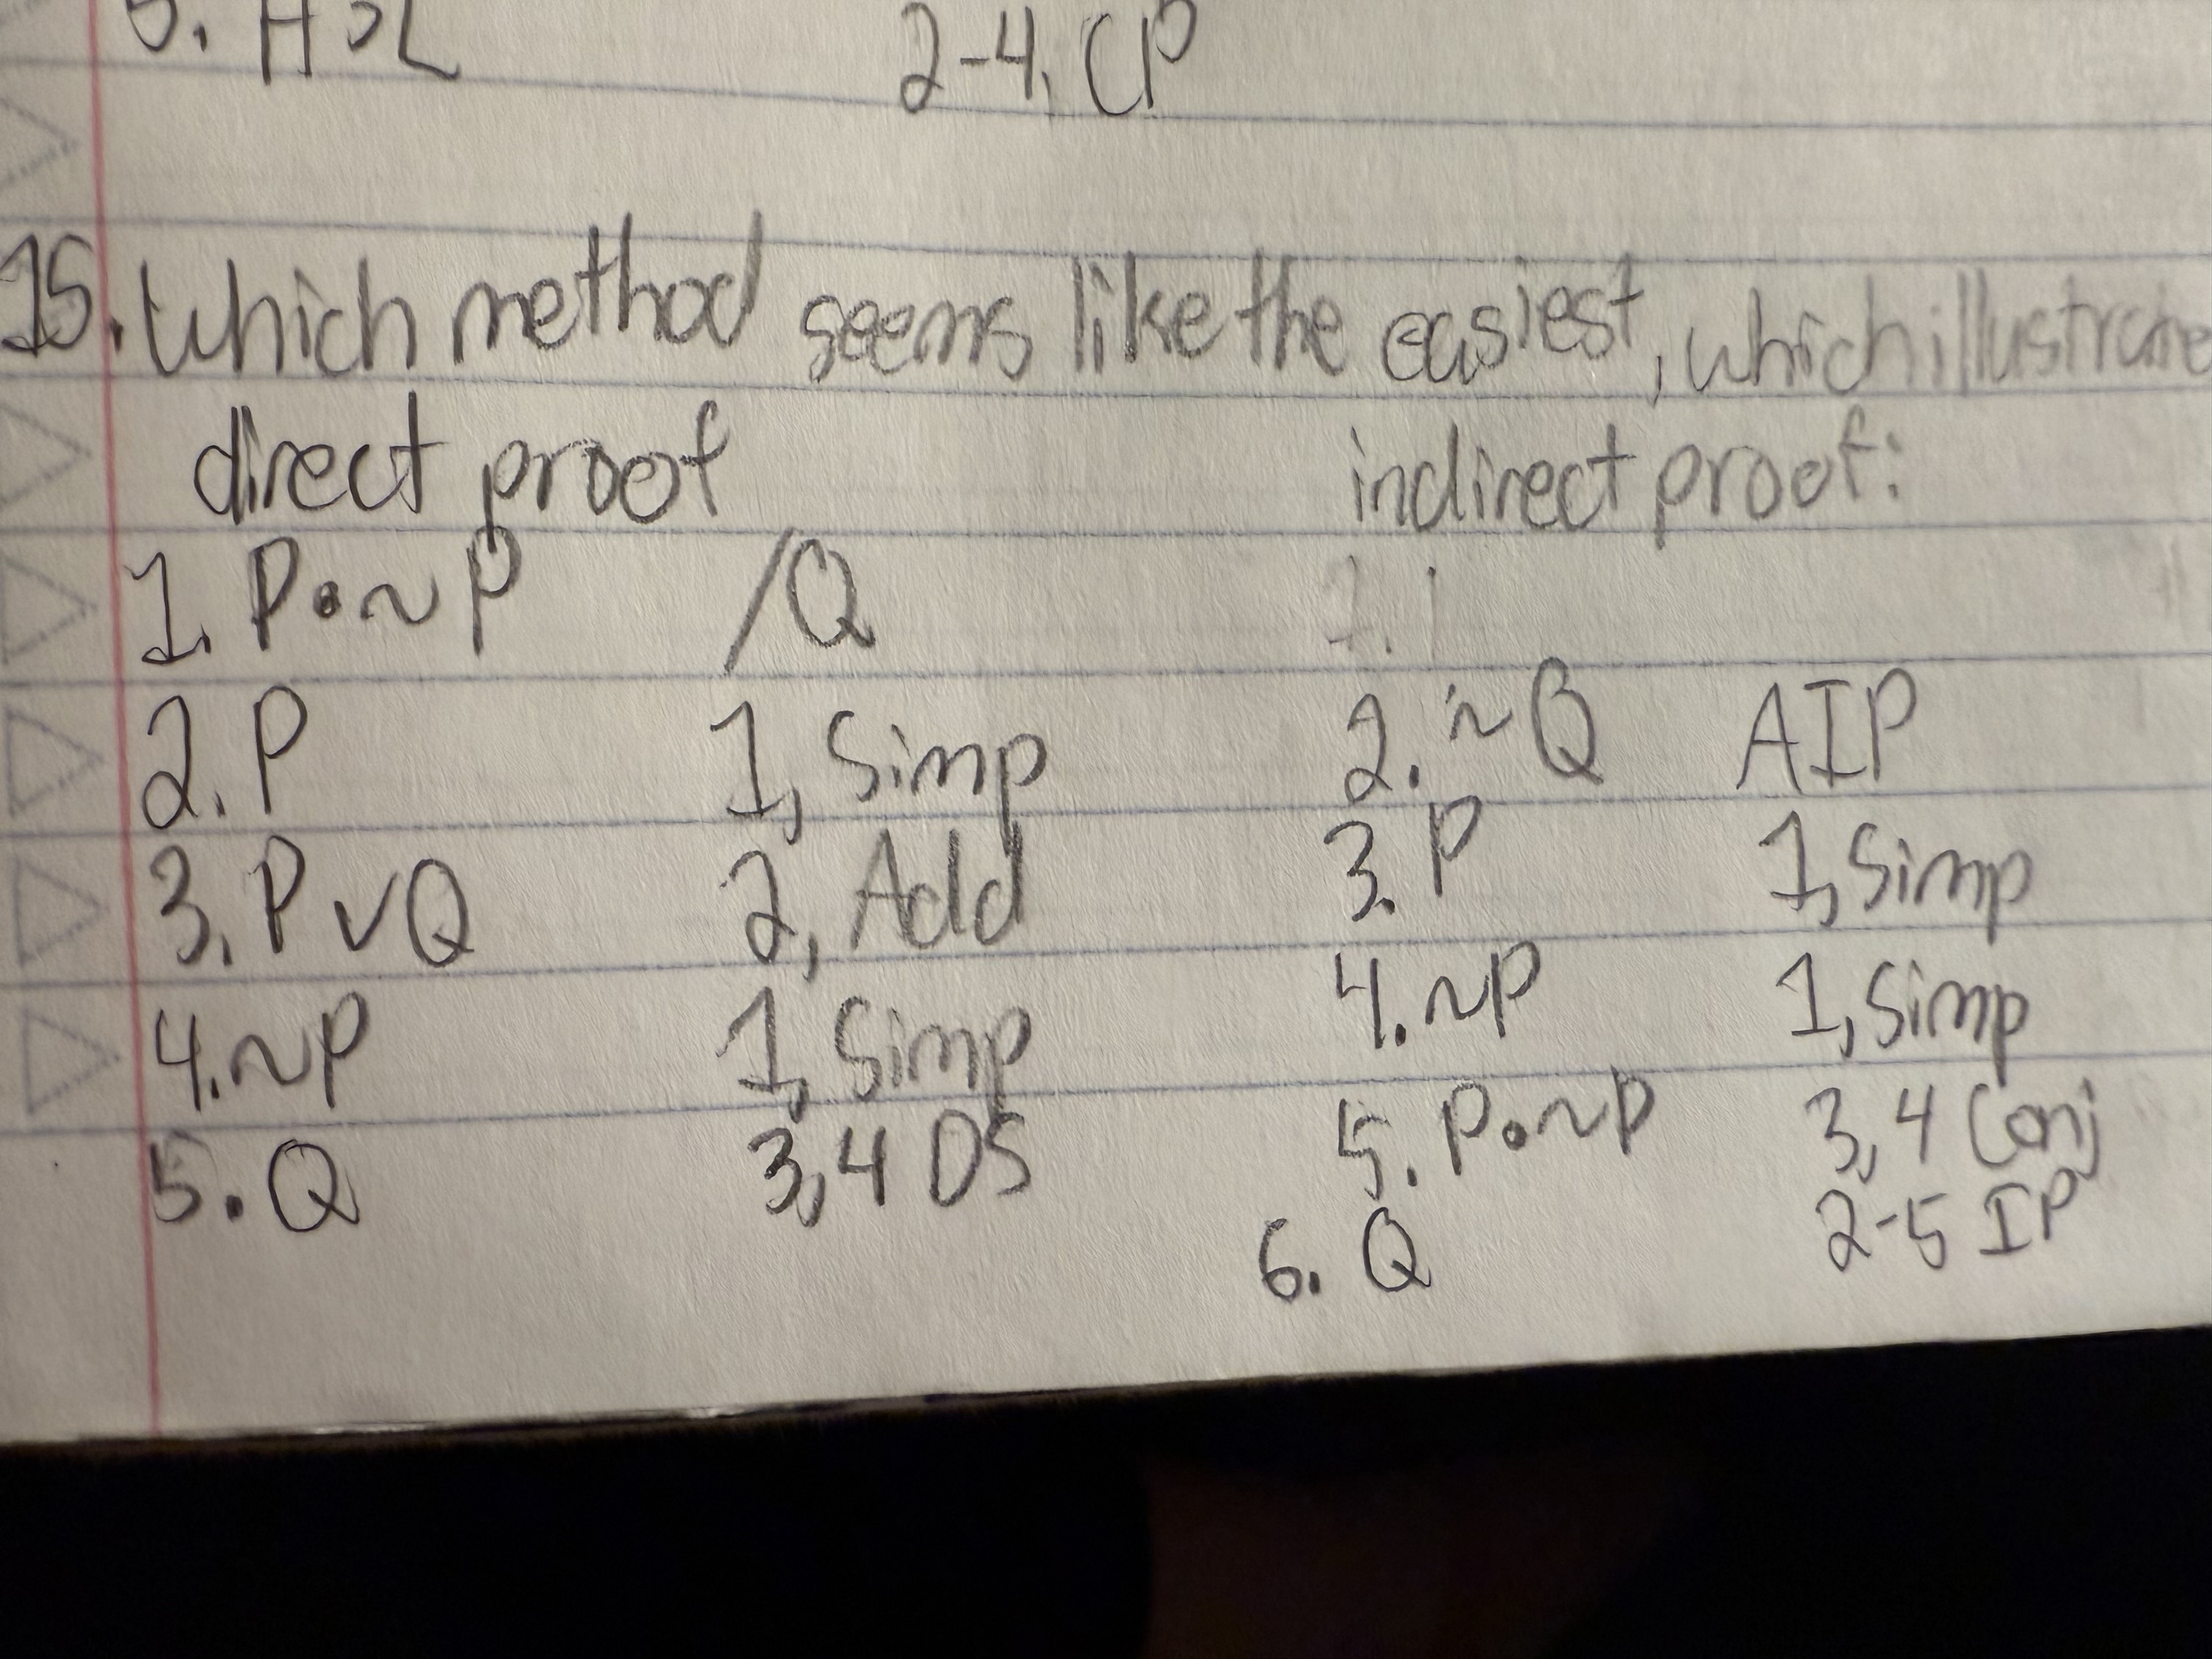 5. H⊃L 2-4, CP
15. Which method seems like the easiest, which illustrate
direct proof indirect proof:
1. P•~P /Q 1.
2. P 1, Simp 2. ~Q AIP
3. P∨Q 2, Add 3. P 1, Simp
4. ~P 1, Simp 4. ~P 1, Simp
5. Q 3,4 DS 5. P•~P 3,4 Conj
6. Q 2-5 IP